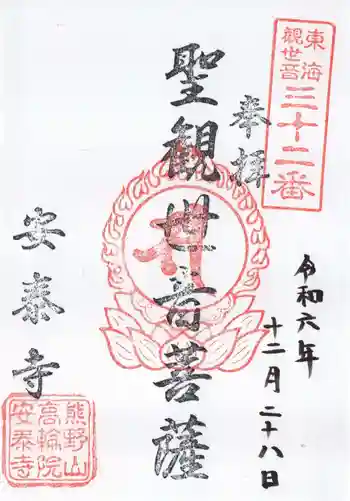 東海
観世音
三十二番
奉拝
令和六年
十二月二十八日
聖観世音菩薩
安泰寺
熊野山
高輪院
安泰寺